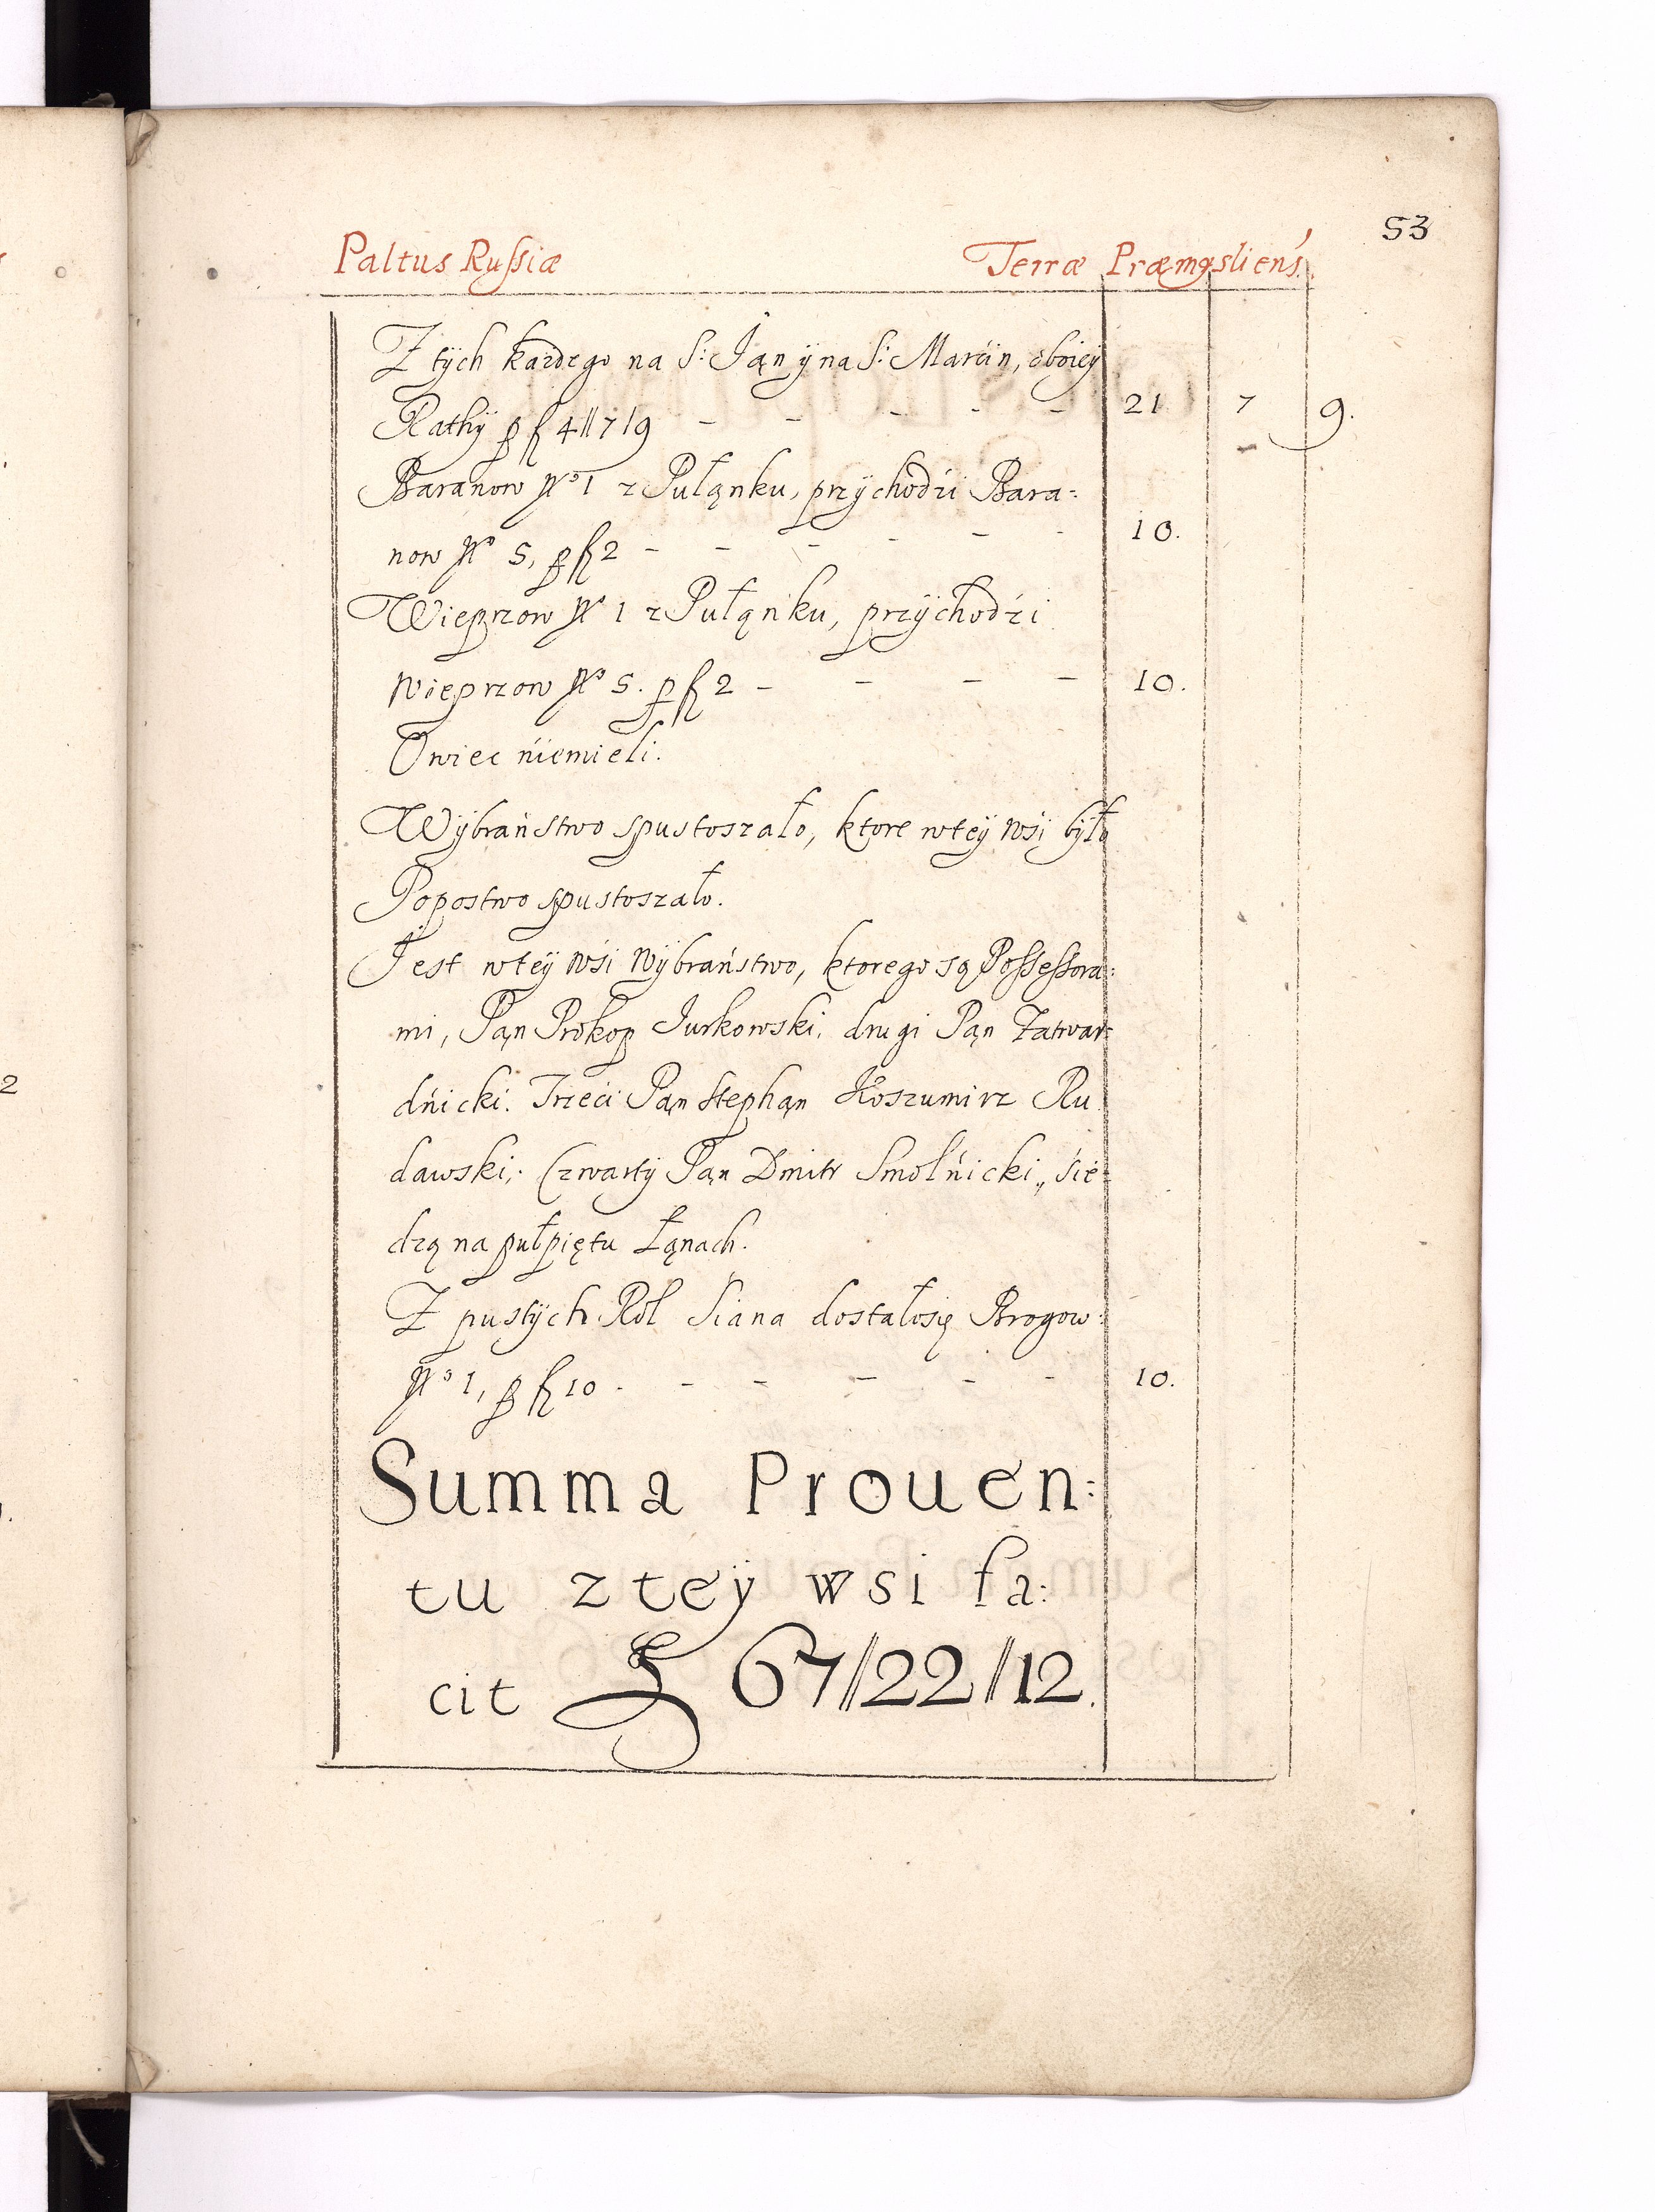 53
Paltus Russiæ Terræ Præmysliens.
Z tÿch kazdego na S: Ján ÿ na S: Marćin, oboieÿ
Rathÿ p fl 4 || 7 | 9 - - - - - 21 7 9.
Baranow No 1 z Pułąnku, przÿchodźi Bara:
now No 5, p fl 2 - - - - - - 10.
Wieprzow No 1 z Pułąnku, przÿchodźi
Wieprzow No 5. p fl 2 - - - - 10.
Owiec niemieli.
Wÿbraństwo spustoszało, ktore wteÿ wsi bÿło
Popostwo spustoszało.
Jest wteÿ wsi wÿbraństwo, ktorego są Possessora:
mi, Pąn Prokop Jurkowski, drugi Pąn Zatwar:
dnicki. Trzeći Pąn Stephąn Koszumirz Ru
dawski; Czwartÿ Pąn Dmitr Smolnicki, śie:
dzą na pułpiętu Łąnach.
Z pustÿch Rol Siana dostałosię Brogow:
No 1, p fl 10 . - - - - - 10.
Summa Prouen:
tu z teÿ wsi fa:
cit fl 67 || 22 || 12.
2